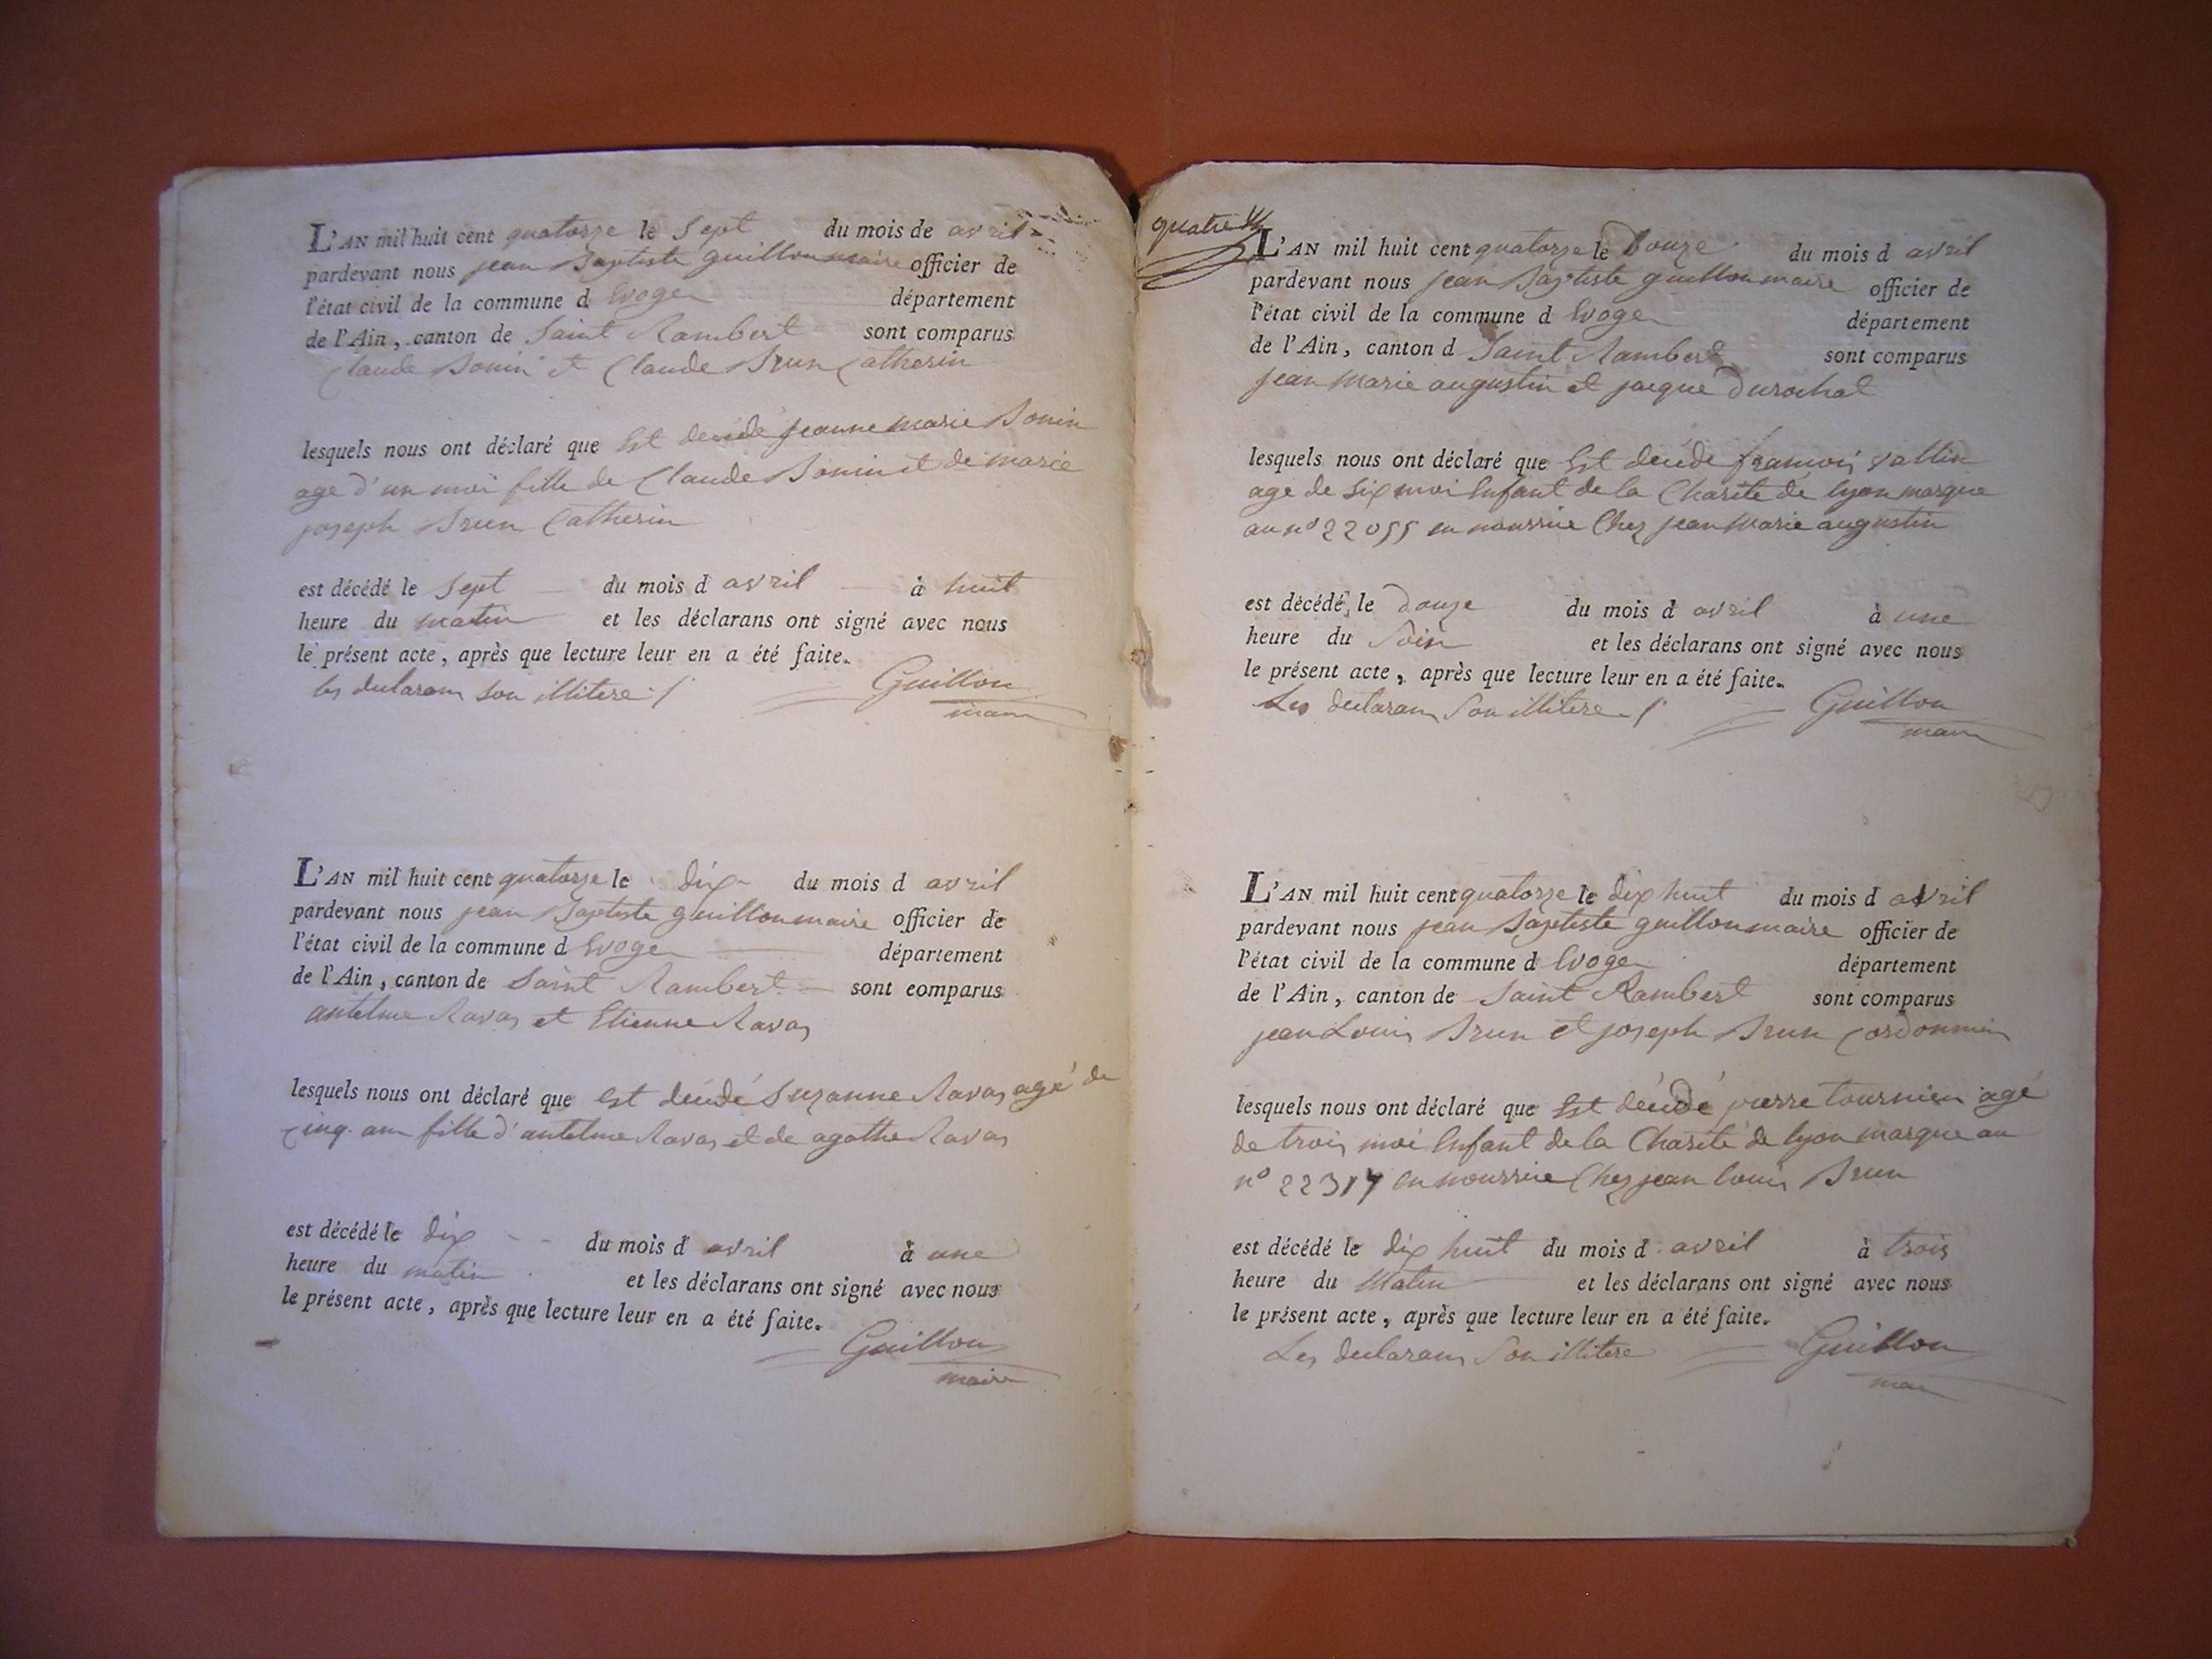 L'AN mil huit cent quatorze le sept du mois de avril
pardevant nous jean Baptiste guillon maire officier de
l'état civil de la commune d Evoge département
de l'Ain, canton de Saint Rambert sont comparus
Claude Bonin et Claude Brun Catherin
lesquels nous ont déclaré que Est décédé jeanne marie Bonin
age d'un moi fille de Claude Bonin et de marie
joseph Brun Catherin
est décédé le sept du mois d avril à huit
heure du matin et les déclarans ont signé avec nous
le présent acte, après que lecture leur en a été faite.
les declarans son illitere Guillon
maire
L'AN mil huit cent quatorze le dix du mois d avril
pardevant nous jean Baptiste guillon maire officier de
l'état civil de la commune d Evoge département
de l'Ain, canton de Saint Rambert sont comparus
antelme Ravas et Etienne Ravas
lesquels nous ont déclaré que est décédé Suzanne Ravas agé de
cinq ans fille d'antelme Ravas et de agathe Ravas
est décédé le dix du mois d avril à une
heure du matin et les déclarans ont signé avec nous
le présent acte, après que lecture leur en a été faite.
Guillon
maire
quatre
L'AN mil huit cent quatorze le Douze du mois d avril
pardevant nous jean Baptiste guillon maire officier de
l'état civil de la commune d Evoge département
de l'Ain, canton d Saint Rambert sont comparus
jean marie augustin et jacque Durochat
lesquels nous ont déclaré que Est décédé françois vallin
age de six moi Enfant de la Charité de lyon marque
au nº 22055 en nourrice Chez jean Marie augustin
est décédé, le Douze du mois d avril à une
heure du soir et les déclarans ont signé avec nous
le présent acte, après que lecture leur en a été faite.
Les declarans son illitere Guillon
maire
L'AN mil huit cent quatorze le dix huit du mois d avril
pardevant nous jean Baptiste guillon maire officier de
l'état civil de la commune d Evoge département
de l'Ain, canton de Saint Rambert sont comparus
jean Louis Brun et joseph Brun Cordonnier
lesquels nous ont déclaré que Est décédé pierre tournier agé
de trois moi Enfant de la Charité de lyon marque au
nº 22317 en nourrice Chez jean louis Brun
est décédé le dix huit du mois d avril à trois
heure du Matin et les déclarans ont signé avec nous
le présent acte, après que lecture leur en a été faite.
Les declarans son illitere Guillon
maire